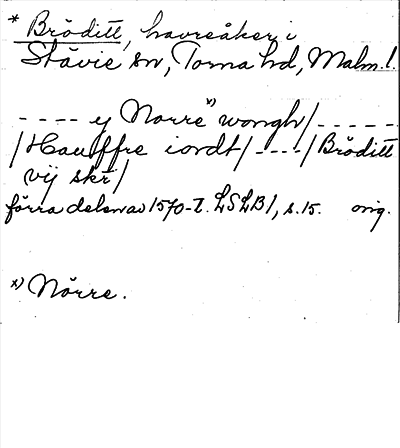 * Bröditt, havreåker i
Stävie sn, Torna hd, Malm. l.
---- y Norre x) wongh/-----
/Hauffre iordt/----/Bröditt
vij skr/
förra delen av 1570-t. LSLB1, s.15. orig.
x) Nörre.